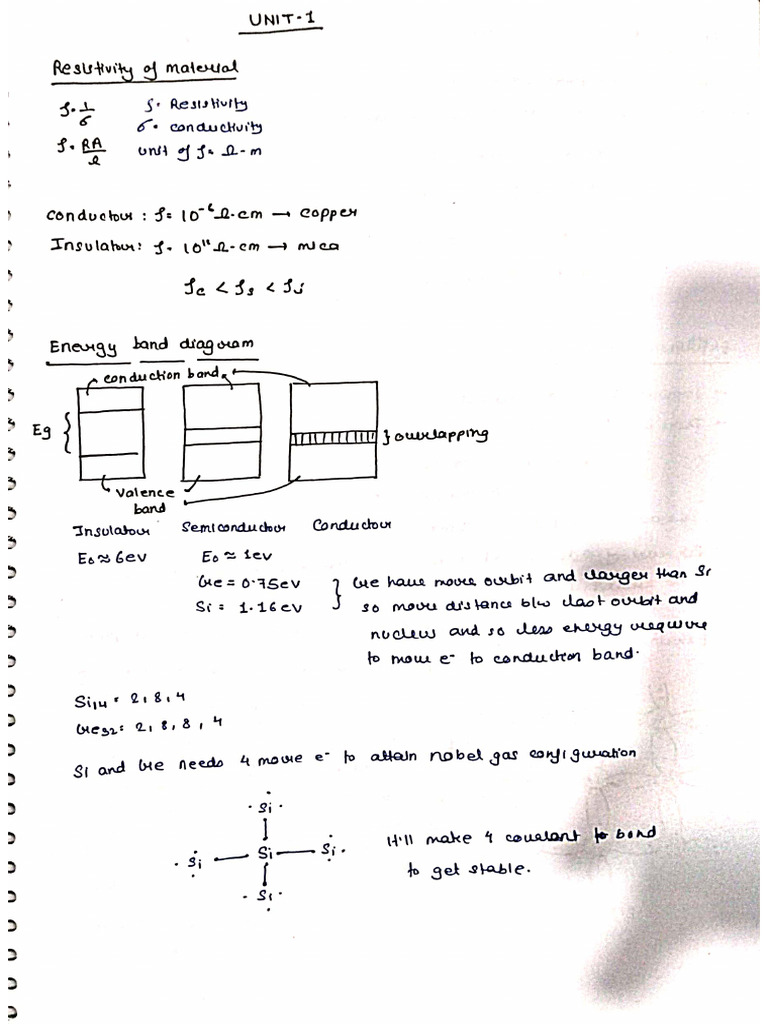 UNIT-1
Resistivity of material
ρ = 1/σ ρ = Resistivity
σ = conductivity
ρ = RA/l unit of ρ = Ω-m
Conductor : ρ = 10⁻⁶ Ω.cm → copper
Insulator : ρ = 10¹² Ω.cm → mica
ρc < ρs < ρi
Energy band diagram
conduction band
Eg
} overlapping
Valence
band
Insulator Semiconductor Conductor
E₀ ≈ 6ev E₀ ≈ 1ev
Ge = 0.75ev } Ge have more orbit and larger than Si
Si = 1.16ev so more distance b/w last orbit and
nucleus and so less energy require
to move e⁻ to conduction band.
Si₁₄ = 2, 8, 4
Ge₃₂ = 2, 8, 8, 4
Si and Ge needs 4 more e⁻ to attain nobel gas configuration
Si
Si — Si — Si
Si
It'll make 4 covelant bond
to get stable.